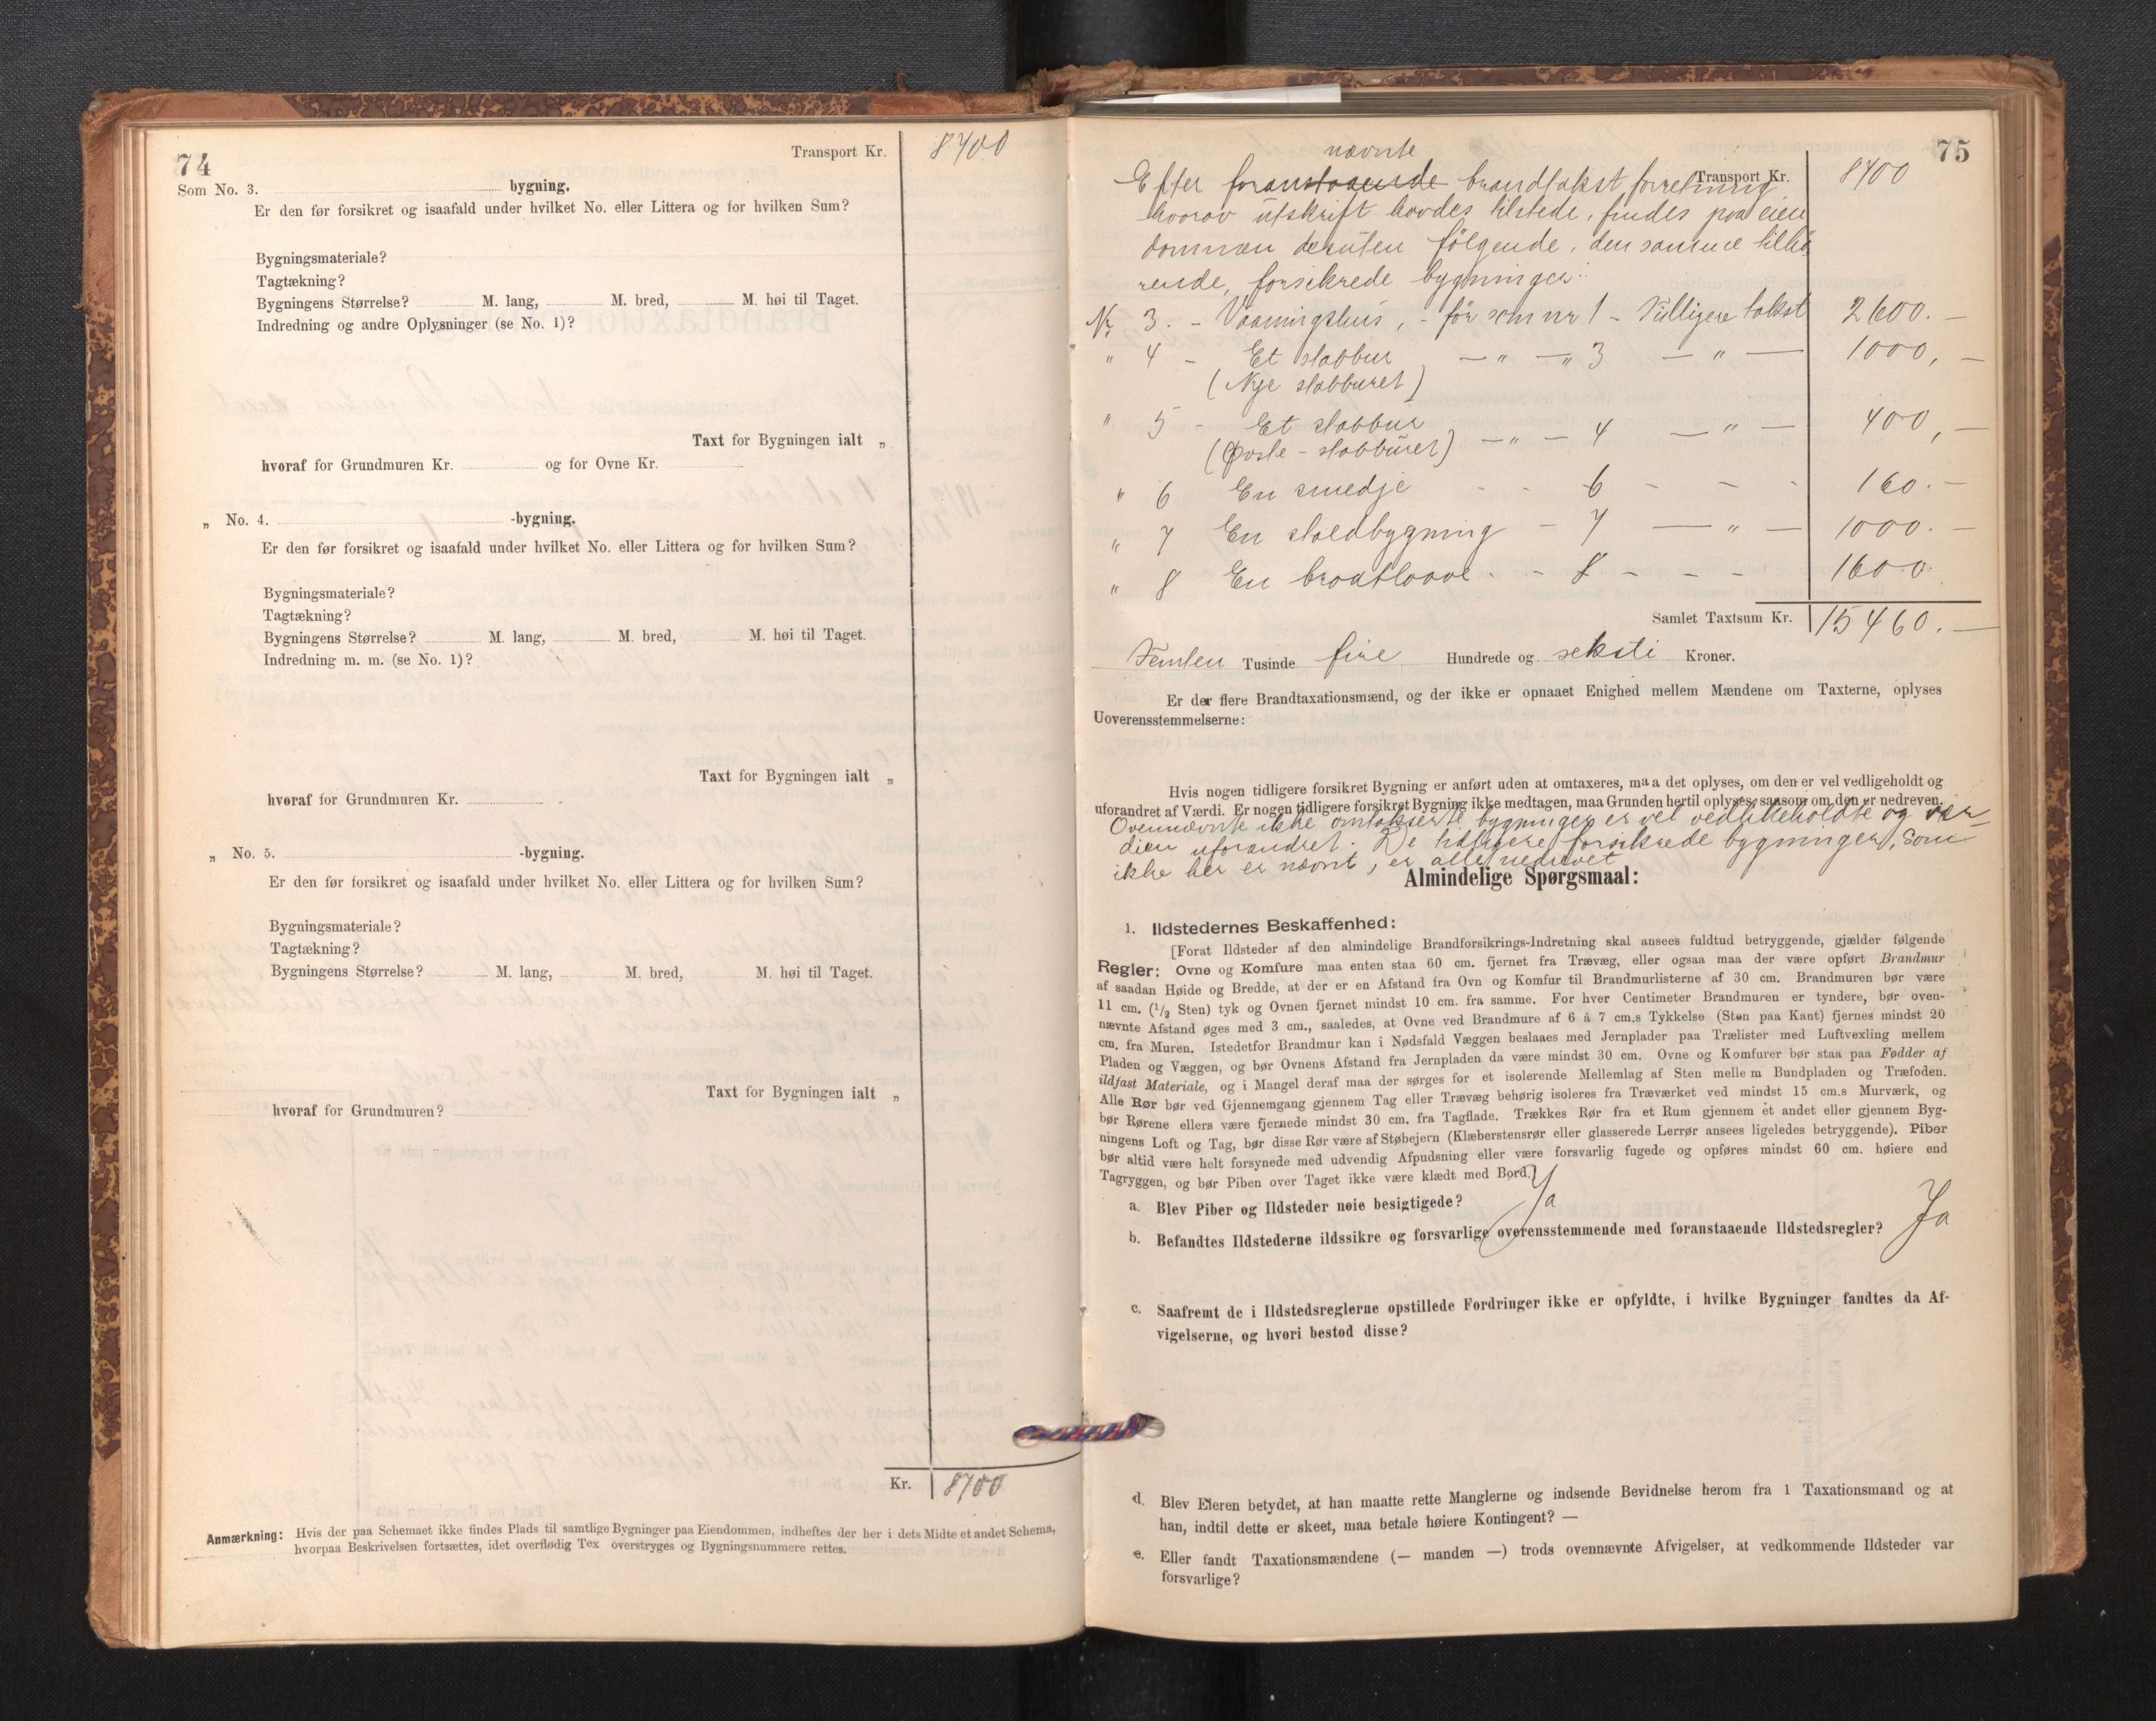 74
Transport Kr. 8700
Som No. 3. bygning.
Er den før forsikret og isaafald under hvilket No. eller Littera og for hvilken Sum?
Bygningsmateriale?
Tagtækning?
Bygningens Størrelse? M. lang, M. bred, M. høi til Taget.
Indredning og andre Oplysninger (se No. 1)?
Taxt for Bygningen ialt „
hvoraf for Grundmuren Kr. og for Ovne Kr.
„ No. 4. -bygning.
Er den før forsikret og isaafald under hvilket No. eller Littera og for hvilken Sum?
Bygningsmateriale?
Tagtækning?
Bygningens Størrelse? M. lang, M. bred, M. høi til Taget.
Indredning m. m. (se No. 1)?
Taxt for Bygningen ialt „
hvoraf for Grundmuren Kr.
„ No. 5. -bygning.
Er den før forsikret og isaafald under hvilket No. eller Littera og for hvilken Sum?
Bygningsmateriale?
Tagtækning?
Bygningens Størrelse? M. lang, M. bred, M. høi til Taget.
Taxt for Bygningen ialt „
hvoraf for Grundmuren?
Kr. 8700
Anmærkning: Hvis der paa Schemaet ikke findes Plads til samtlige Bygninger paa Eiendommen, indheftes der her i dets Midte et andet Schema,
hvorpaa Beskrivelsen fortsættes, idet overflødig Tex overstryges og Bygningsnummere rettes.
75
Transport Kr. 8700
nævnte
Efter foranstaaende brandtakstforretning
hvorav utskrift havdes tilstede, findes paa eien
dommen desuten følgende, den samme tilhø
rende, forsikrede bygninger:
Nr. 3. - Vaaningshus, - før som nr 1 - Tidligere takst 2600. —
" 4 - Et stabbur — " — " 3 — " — 1000, —
(Nye stabburet)
" 5 - Et stabbur — " — 4 — " — 400, —
(Øvste - stabburet)
" 6 En smedje - - 6 - - - 160. —
" 7 En stoedbygning - 7 — " — 1000. —
" 8 En braatlaave - - 8 - - - 1600
Samlet Taxtsum Kr. 15460. —
Femten Tusinde fire Hundrede og seksti Kroner.
Er der flere Brandtaxationsmænd, og der ikke er opnaaet Enighed mellem Mændene om Taxterne, oplyses
Uoverensstemmelserne:
Hvis nogen tidligere forsikret Bygning er anført uden at omtaxeres, maa det oplyses, om den er vel vedligeholdt og
uforandret af Værdi. Er nogen tidligere forsikret Bygning ikke medtagen, maa Grunden hertil oplyses, saasom om den er nedreven.
Ovennævnte ikke omtakserte bygninger er vel vedlikeholdte og vær
dien uforandret. De tidligere forsikrede bygninger, som
ikke her er nævnt, er alle nedrevet
Almindelige Spørgsmaal:
1. Ildstedernes Beskaffenhed:
[Forat Ildsteder af den almindelige Brandforsikrings-Indretning skal ansees fuldtud betryggende, gjælder følgende
Regler: Ovne og Komfure maa enten staa 60 cm. fjernet fra Trævæg, eller ogsaa maa der være opført Brandmur
af saadan Høide og Bredde, at der er en Afstand fra Ovn og Komfur til Brandmurlisterne af 30 cm. Brandmuren bør være
11 cm. (1/2 Sten) tyk og Ovnen fjernet mindst 10 cm. fra samme. For hver Centimeter Brandmuren er tyndere, bør oven-
nævnte Afstand øges med 3 cm., saaledes, at Ovne ved Brandmure af 6 à 7 cm.s Tykkelse (Sten paa Kant) fjernes mindst 20
cm. fra Muren. Istedetfor Brandmur kan i Nødsfald Væggen beslaaes med Jernplader paa Trælister med Luftvexling mellem
Pladen og Væggen, og bør Ovnens Afstand fra Jernpladen da være mindst 30 cm. Ovne og Komfurer bør staa paa Fødder af
ildfast Materiale, og i Mangel deraf maa der sørges for et isolerende Mellemlag af Sten mellem Bundpladen og Træfoden.
Alle Rør bør ved Gjennemgang gjennem Tag eller Trævæg behørig isoleres fra Træværket ved mindst 15 cm.s Murværk, og
bør Rørene ellers være fjernede mindst 30 cm. fra Tagflade. Trækkes Rør fra et Rum gjennem et andet eller gjennem Byg-
ningens Loft og Tag, bør disse Rør være af Støbejern (Klæberstensrør eller glasserede Lerrør ansees ligeledes betryggende). Piber
bør altid være helt forsynede med udvendig Afpudsning eller være forsvarlig fugede og opføres mindst 60 cm. høiere end
Tagryggen, og bør Piben over Taget ikke være klædt med Bord.]
a. Blev Piber og Ildsteder nøie besigtigede? Ja
b. Befandtes Ildstederne ildssikre og forsvarlige overensstemmende med foranstaaende Ildstedsregler? Ja
c. Saafremt de i Ildstedsreglerne opstillede Fordringer ikke er opfyldte, i hvilke Bygninger fandtes da Af-
vigelserne, og hvori bestod disse?
d. Blev Eieren betydet, at han maatte rette Manglerne og indsende Bevidnelse herom fra 1 Taxationsmand og at
han, indtil dette er skeet, maa betale høiere Kontingent? —
e. Eller fandt Taxationsmændene (— manden —) trods ovennævnte Afvigelser, at vedkommende Ildsteder var
forsvarlige?